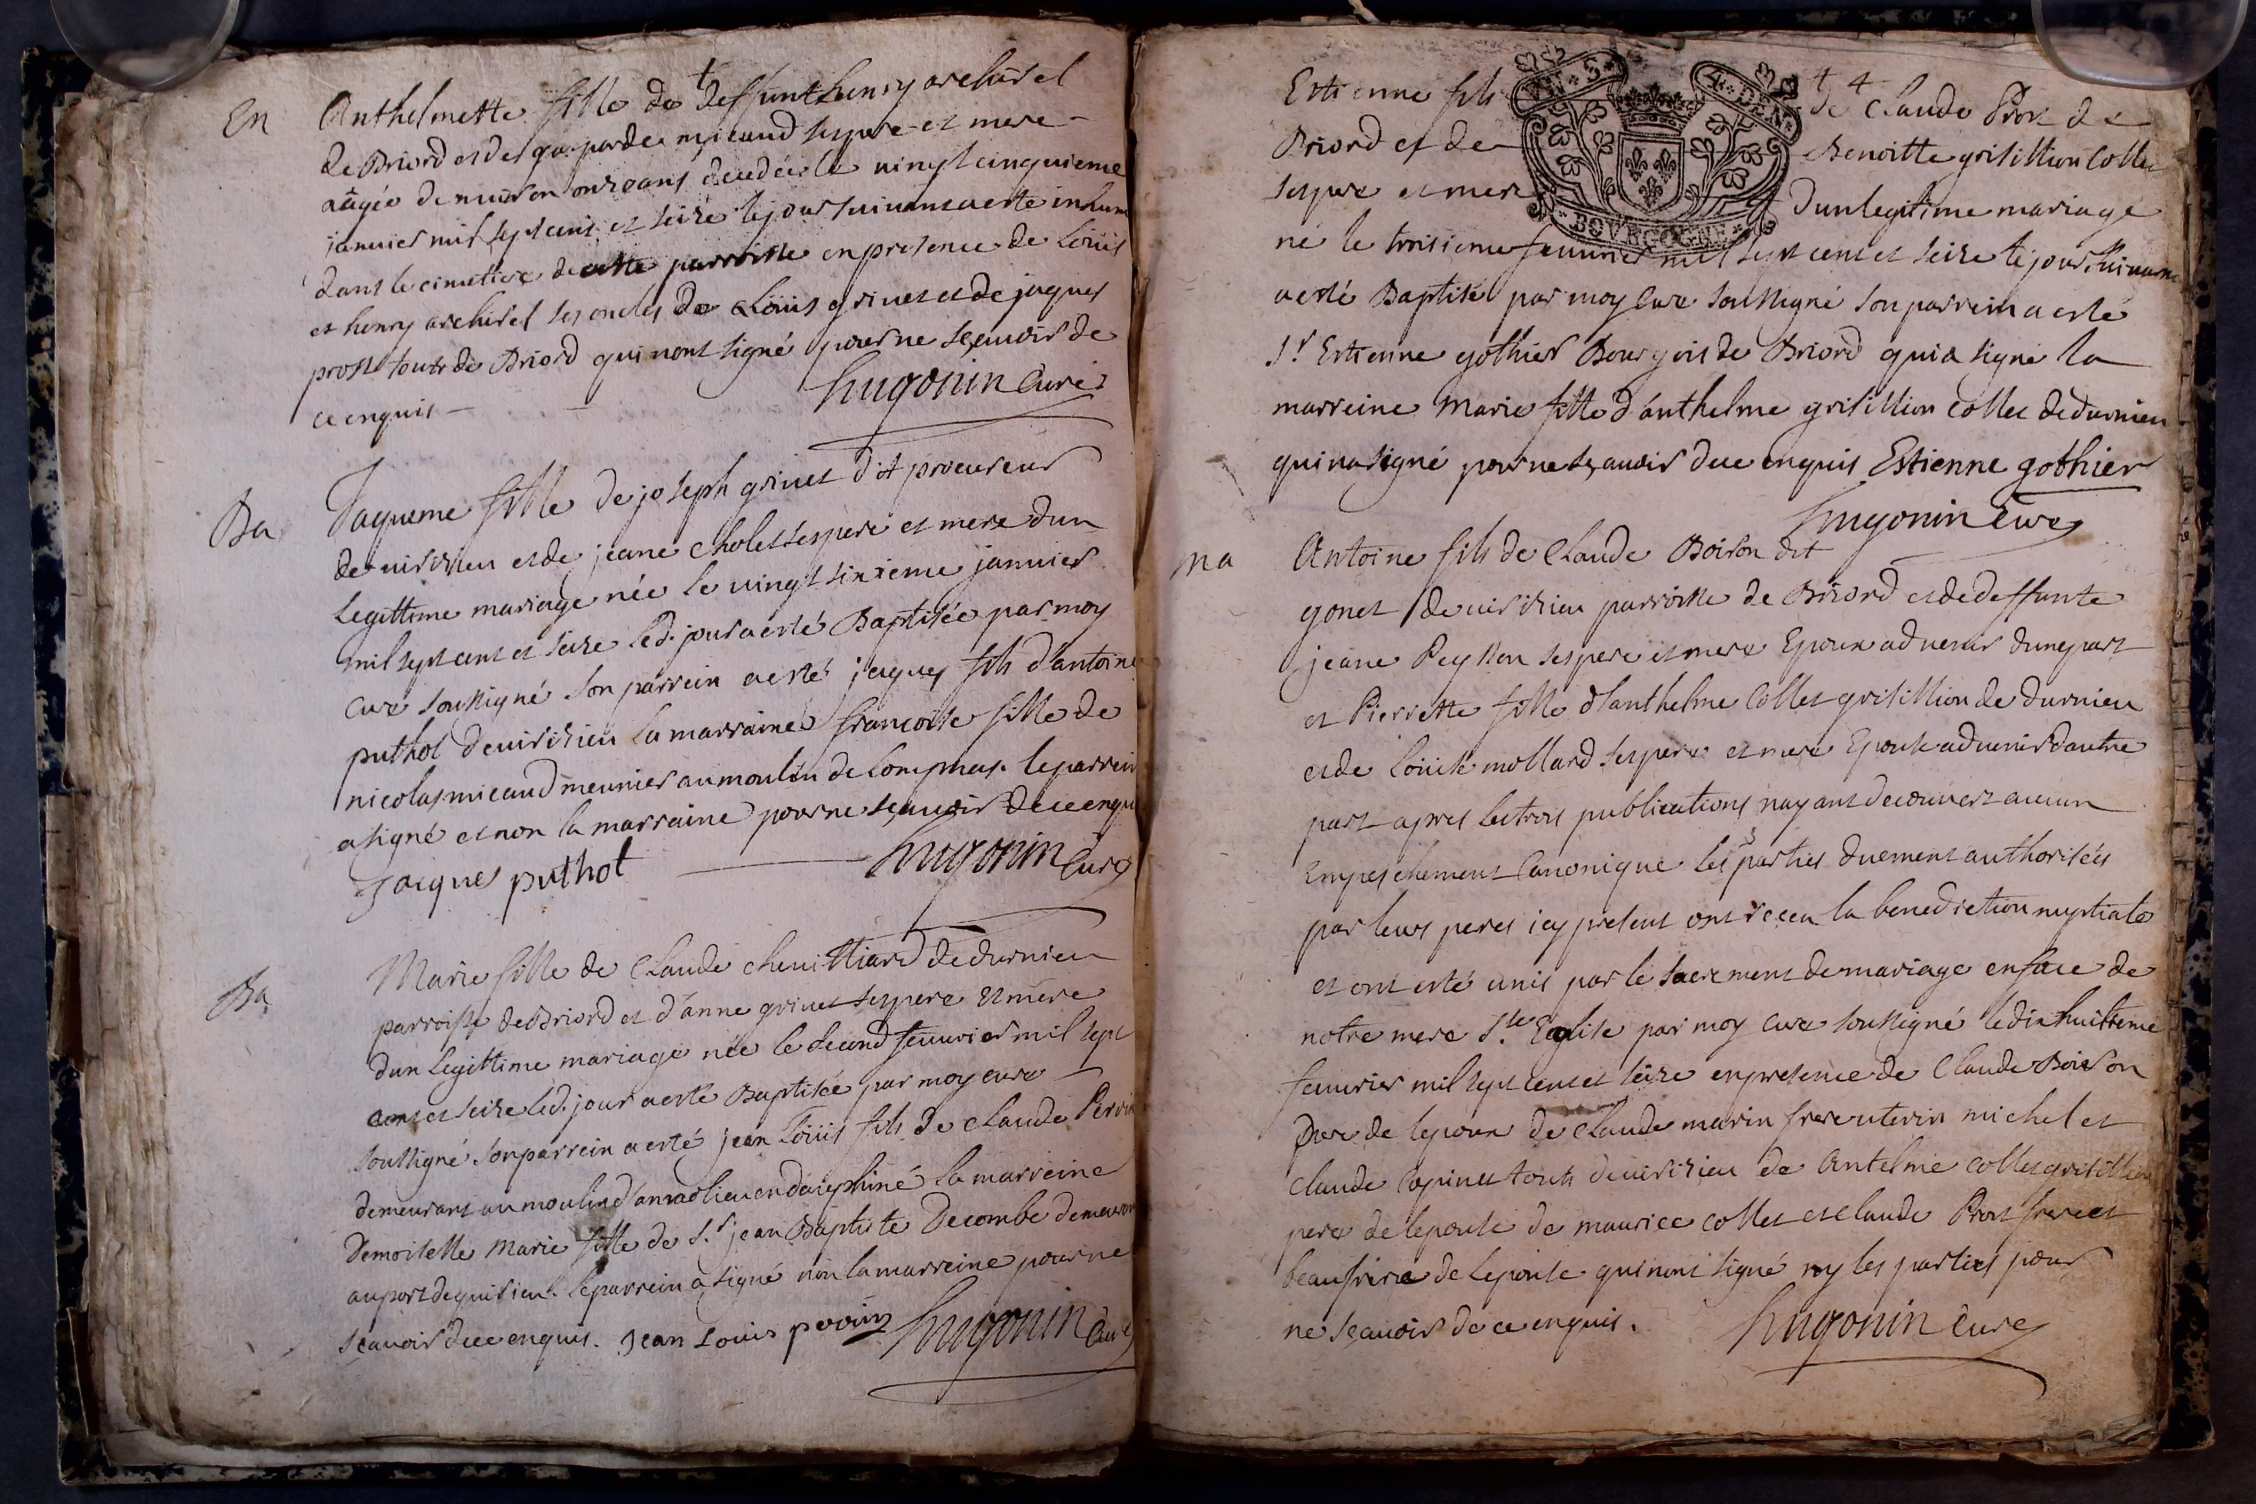 En
Anthelmette fille de deffunt henry archirel
de Briord et de gasparde micaud ses pere et mere
aagée de nuiron onze ans decedée le vingt cinquieme
januier mil sept cent et seize le jour suiuant a esté inhum
dans le cimettiere de cette parroisse en presence de Loüis
et henry archirel ses oncles de Loüis griuet et de jaques
prost touts de Briord qui nont signé pour ne sçauoir de
ce enquis
hugonin Curé
Ba
Jaqueme fille de joseph griuet dit procureur
de uirizieu et de jeane cholet ses pere et mere dun
legittime mariage née le vingt sixieme januier
mil sept cent et seize led. jour a esté Baptisée par moy
Curé soussigné son parrein a esté jaques fils d'antoine
puthot de uirizieu la marraine francoise fille de
nicolas micaud meunier au moulin de Lompnas. le parrein
a signé et non la marraine pour ne sçauoir de ce enqu
jacques puthot
hugonin Curé
Ba
Marie fille de Claude cheuilliard de durnieu
parroisse de Briord et d'anne griuet ses pere et mere
dun legittime mariage née le second feuurier mil sept
cent et seize led. jour a esté Baptisée par moy curé
soussigné son parrein a esté jean Loüis fils de Claude Perrin
demeurant au moulin d'amblieu en dauphiné la marreine
Demoiselle Marie fille de S.r jean Baptiste Decombe demeurant
au port de quirieu. le parrein a signé non la marreine pour ne
sçauoir de ce enquis. jean Louis perrin
hugonin Curé
4
Estienne fils de Claude Prost de
VIN. S. 4. DEN.
Briord et de Benoitte grisillion Collet
ses pere et mere dun legitime mariage
BOVRGOGNE
né le troisieme feuurier mil sept cent et seize le jour suiuant
a esté Baptisé par moy Curé soussigné son parrein a esté
S.r Estienne gothier Bourgois de Briord qui a signé la
marreine Marie fille d'anthelme grisillion Collet de durnieu
qui na signé pour ne sçauoir de ce enquis Estienne gothier
hugonin Curé
Ma
Antoine fils de Claude Boison dit
gonet de uirizieu parroisse de Briord et de deffunte
jeane Peysson ses pere et mere Epoux aduenir dune part
et Pierrette fille d'anthelme Collet grisillion de durnieu
et de Loüise mollard ses pere et mere Epouse aduenir dautre
part apres les trois publications nayant decouuert aucun
Empeschement Canonique les parties duement authorisées
par leurs peres icy present ont receu la benediction nuptiale
et ont esté unis par le sacrement de mariage en face de
notre mere S.te Eglise par moy Curé soussigné le dixhuittieme
feuurier mil sept cent et seize en presence de Claude Boison
pere de lepoux de Claude marin frere uterin michel et
Claude Capinet touts de uirizieu de Antelme Collet grisillion
pere de lepouse de maurice collet et Claude Prost frere et
beaufrere de lepouse qui nont signé ny les parties pour
ne sçauoir de ce enquis.
hugonin Curé